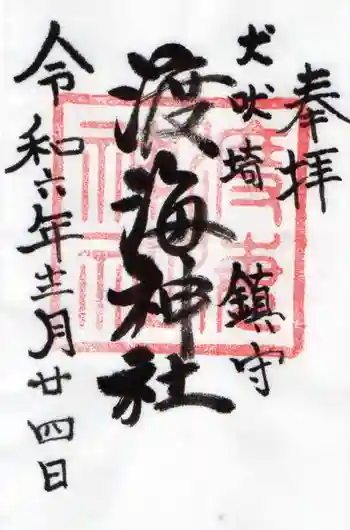 奉拝
犬吠埼
鎮守
渡海神社
令和六年十二月廿四日